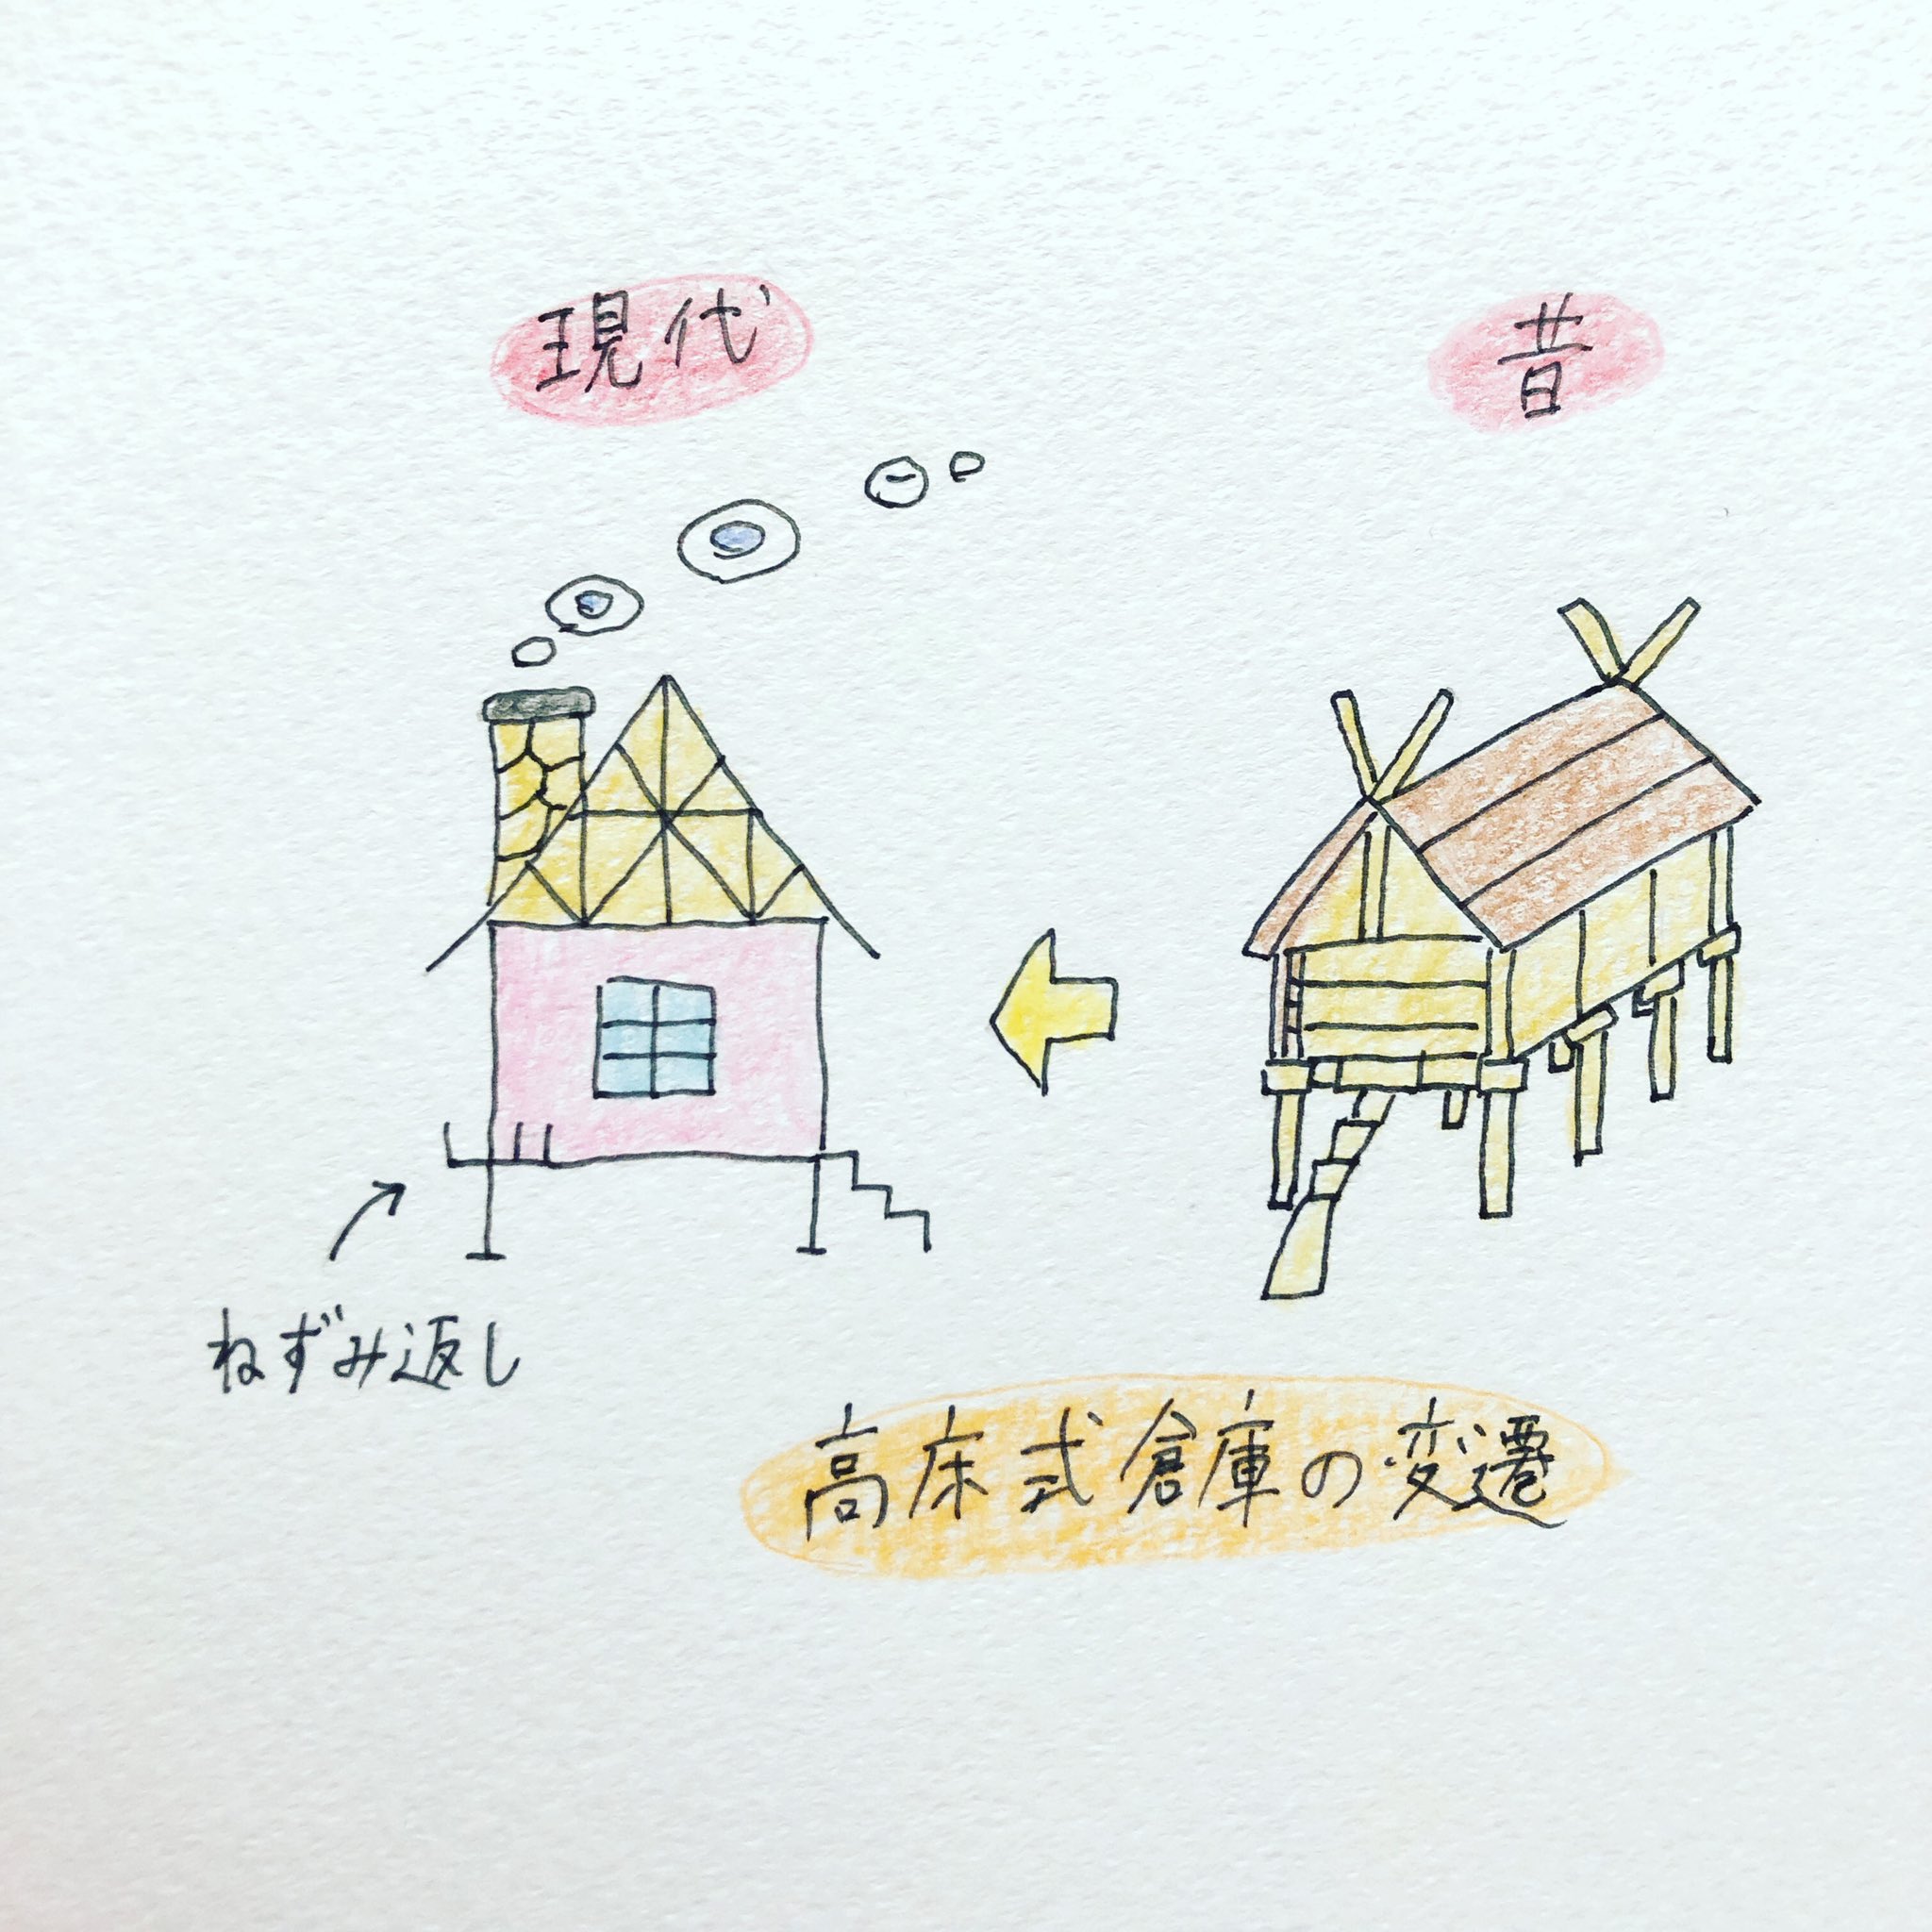 現代
昔
ねずみ返し
高床式倉庫の変遷